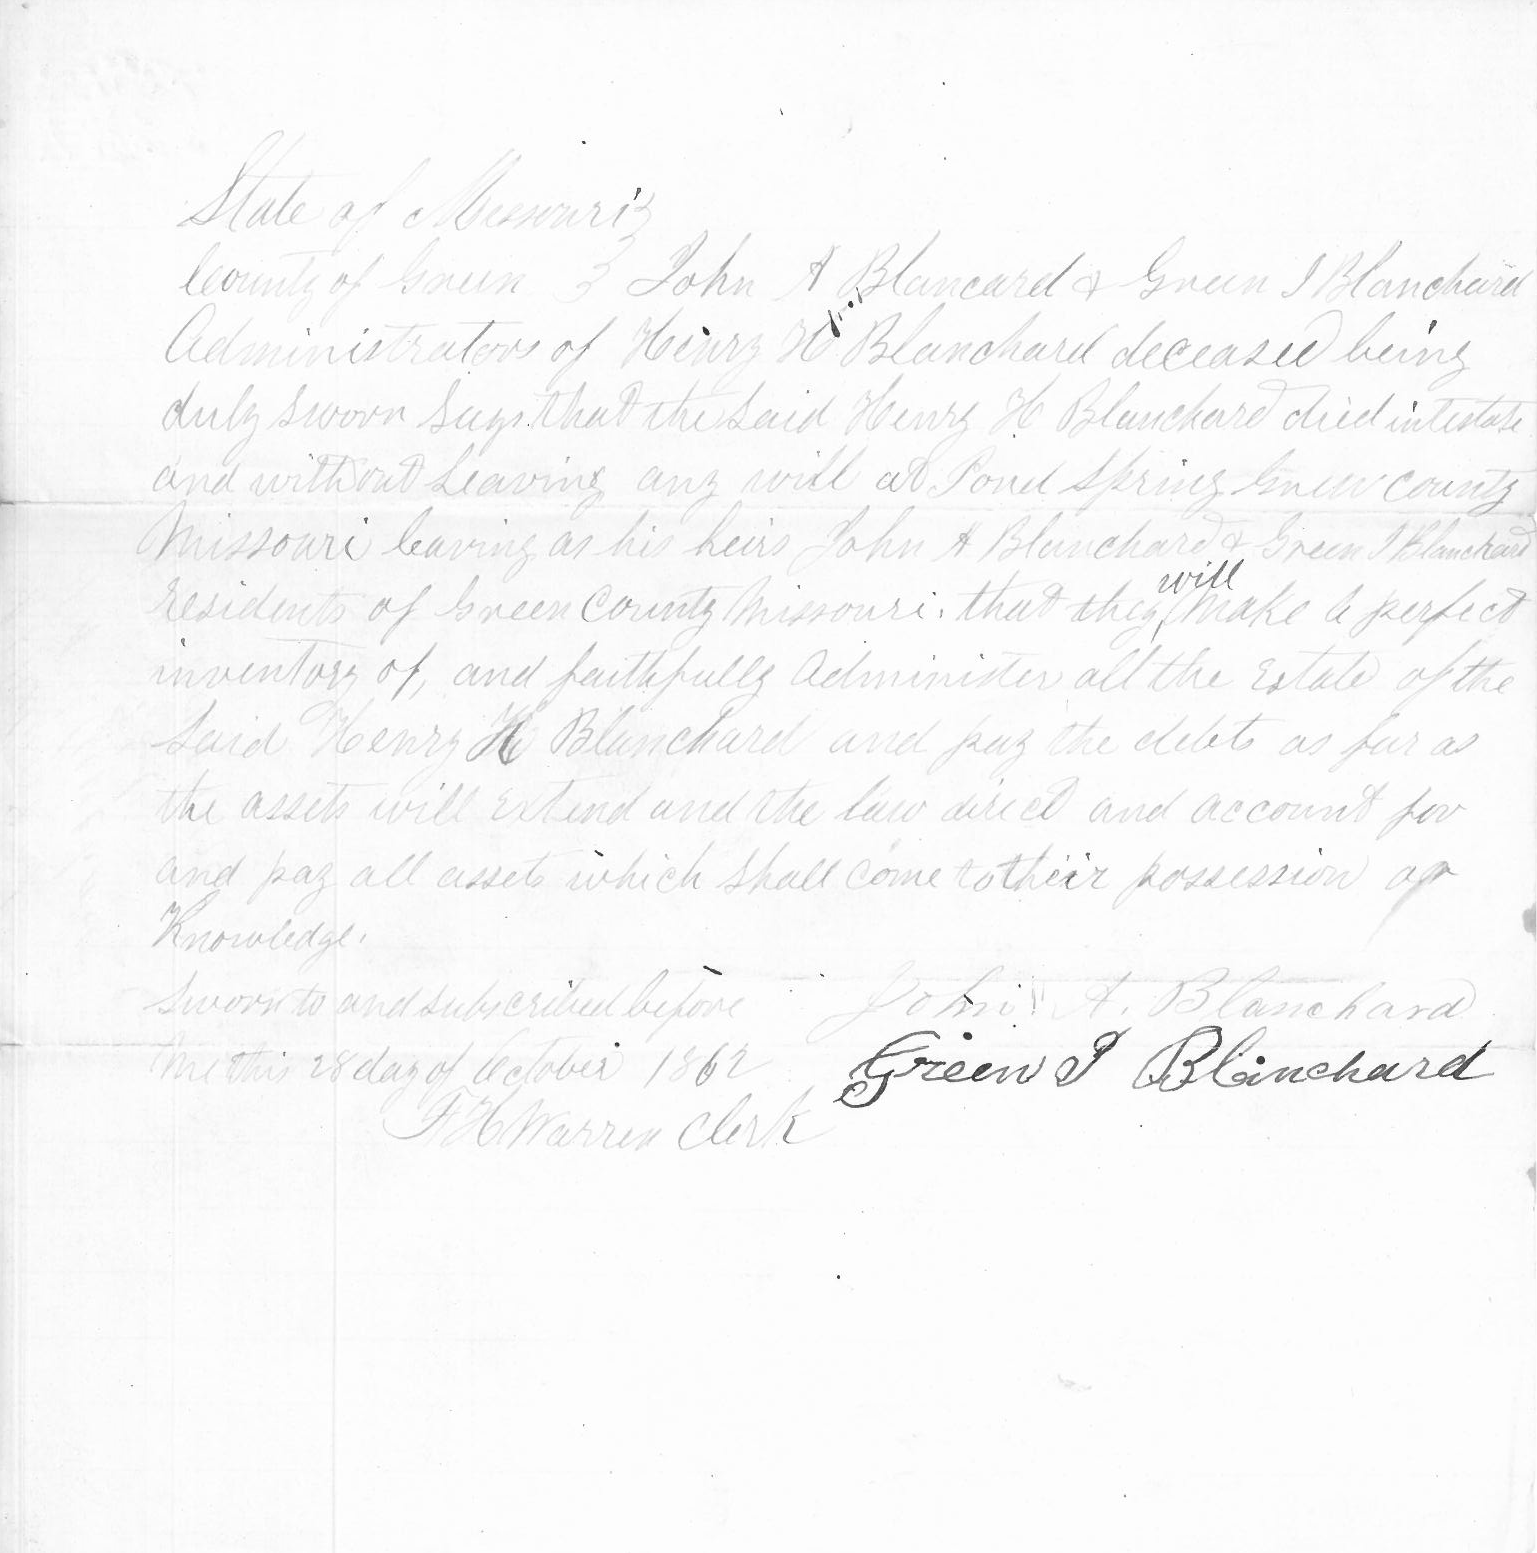 State of Missouri }
County of Green } John A Blancard & Green I Blanchard
Administrators of Henry H Blanchard deceased being
duly sworn Says that the Said Henry H Blanchard died intestate
and without Leaving any will at Pond Spring Green County
Missouri leaving as his heirs John A Blanchard & Green I Blanchard
residents of Green County Missouri. that they will make a perfect
inventory of, and faithfully Administer all the Estate of the
Said Henry H Blanchard and pay the debts as far as
the assets will Extend and the law direct and account for
and pay all assets which shall come to their possession or
Knowledge.
Sworn to and subscribed before John A. Blanchard
me this 28 day of October 1862 Green I Blanchard
F H Warren Clerk